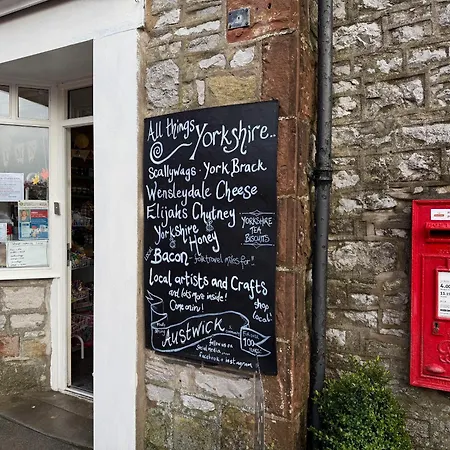 All things Yorkshire..
Scallywags - York Brack
Wensleydale Cheese
Elijahs Chutney
Yorkshire Honey
YORKSHIRE
TEA
BISCUITS
LOCAL
Bacon - folktravel miles for!!
Local artists and Crafts
and lots more inside!
Come on in!
shop
local
Austwick
follow us on
Social media
Facebook
Instagram
FROM
100
4.00